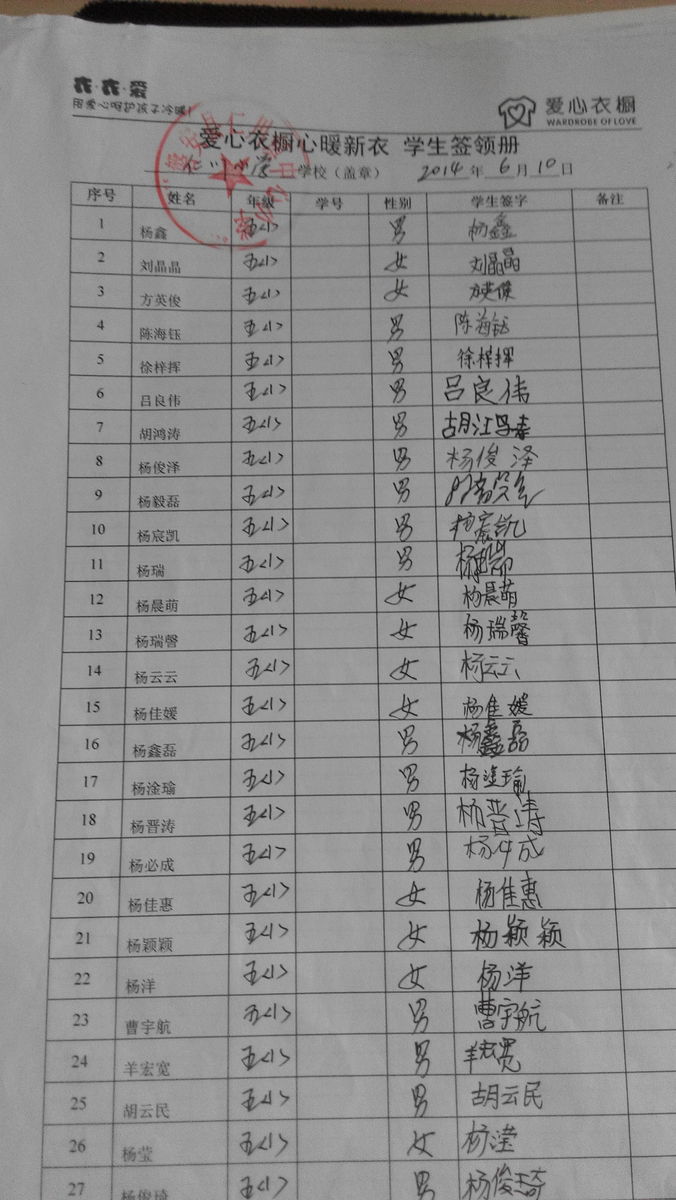 衣·衣·爱
用爱心呵护孩子冷暖!
爱心衣橱
WARDROBE OF LOVE
爱心衣橱心暖新衣 学生签领册
仁川小学 学校（盖章） 2014年6月10日
序号 姓名 年级 学号 性别 学生签字 备注
1 杨鑫 五<1> 男 杨鑫
2 刘晶晶 五<1> 女 刘晶晶
3 方英俊 五<1> 女 方英俊
4 陈海钰 五<1> 男 陈海钰
5 徐梓挥 五<1> 男 徐梓挥
6 吕良伟 五<1> 男 吕良伟
7 胡鸿涛 五<1> 男 胡鸿涛
8 杨俊泽 五<1> 男 杨俊泽
9 杨毅磊 五<1> 男
10 杨宸凯 五<1> 男 杨宸凯
11 杨瑞 五<1> 男 杨瑞
12 杨晨萌 五<1> 女 杨晨萌
13 杨瑞馨 五<1> 女 杨瑞馨
14 杨云云 五<1> 女 杨云云
15 杨佳媛 五<1> 女 杨佳媛
16 杨鑫磊 五<1> 男 杨鑫磊
17 杨淦瑜 五<1> 男 杨淦瑜
18 杨晋涛 五<1> 男 杨晋涛
19 杨必成 五<1> 男 杨必成
20 杨佳惠 五<1> 女 杨佳惠
21 杨颖颖 五<1> 女 杨颖颖
22 杨洋 五<1> 女 杨洋
23 曹宇航 五<1> 男 曹宇航
24 羊宏宽 五<1> 男 羊宏宽
25 胡云民 五<1> 男 胡云民
26 杨莹 五<1> 女 杨滢
27 杨俊琦 五<1> 男 杨俊琦